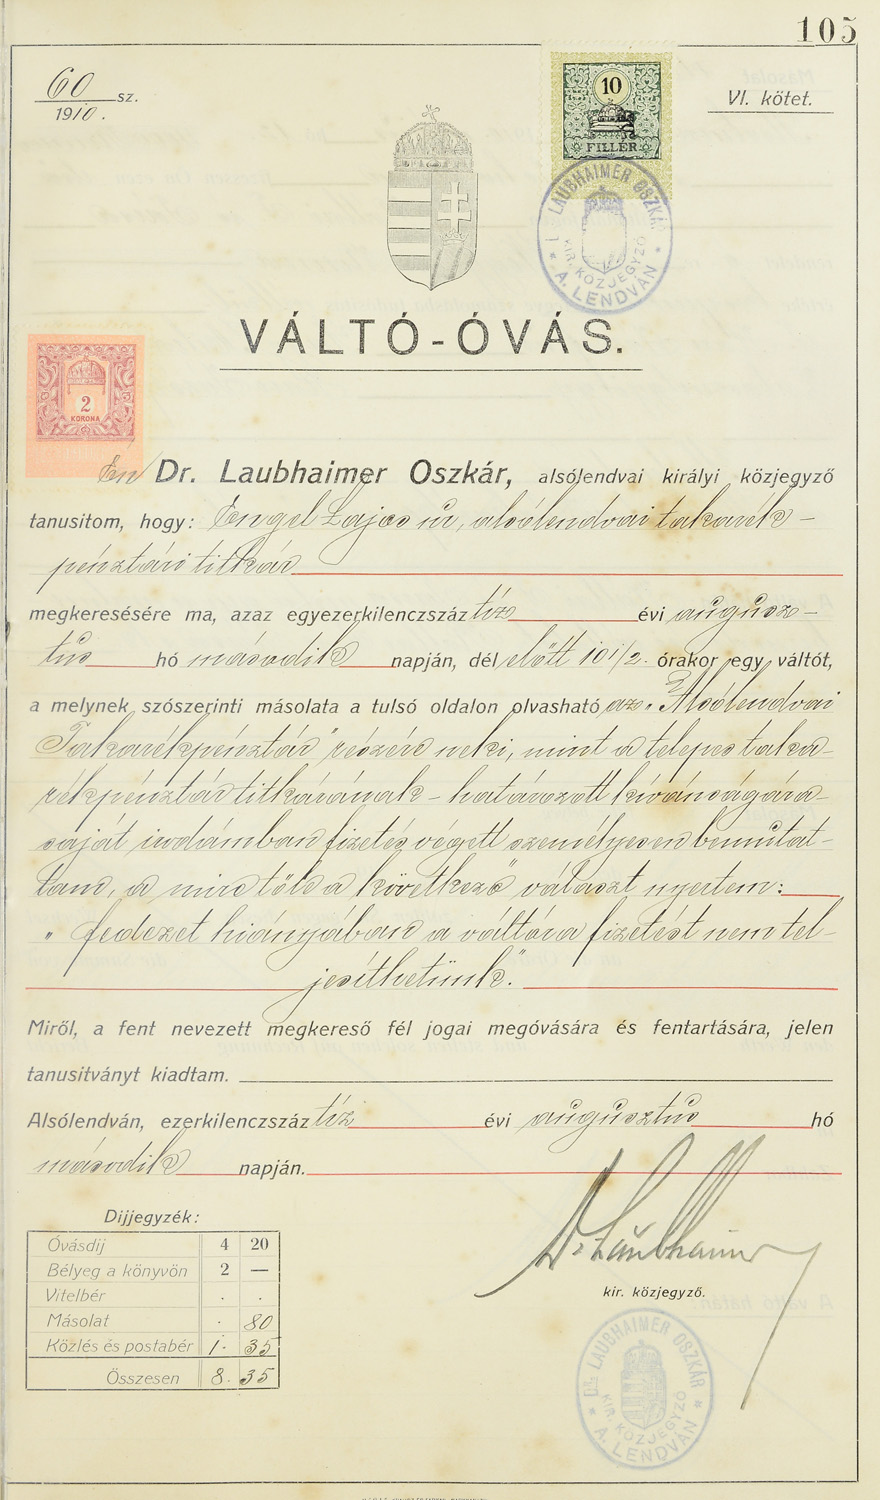 105
60 sz.
1910.
VI. kötet.
10
FILLÉR
DR. LAUBHAIMER OSZKÁR
KIR. KÖZJEGYZŐ
A. LENDVÁN
VÁLTÓ-ÓVÁS.
2
KORONA
Én Dr. Laubhaimer Oszkár, alsólendvai királyi közjegyző
tanusitom, hogy: Engel Lajos úr, alsólendvai takarék-
pénztári titkár
megkeresésére ma, azaz egyezerkilenczszáz tíz évi augusz-
tus hó második napján, dél előtt 10 1/2. órakor egy váltót,
a melynek szószerinti másolata a tulsó oldalon olvasható az „Alsólendvai
Takarékpénztár" részére neki, mint a telepes taka-
rékpénztár titkárának - határozott kívánságára
saját irodámban fizetés végett személyesen bemutat-
tam, a mire tőle a következő választ nyertem:
„fedezet hiányában a váltóra fizetést nem tel-
jesíthetünk".
Miről, a fent nevezett megkereső fél jogai megóvására és fentartására, jelen
tanusitványt kiadtam.
Alsólendván, ezerkilenczszáz tíz évi augusztus hó
második napján.
Dijjegyzék:
Óvásdij 4 20
Bélyeg a könyvön 2 —
Vitelbér . .
Másolat . 80
Közlés és postabér 1. 35
Összesen 8. 35
Dr. Laubhaimer
kir. közjegyző.
DR. LAUBHAIMER OSZKÁR
KIR. KÖZJEGYZŐ
A. LENDVÁN